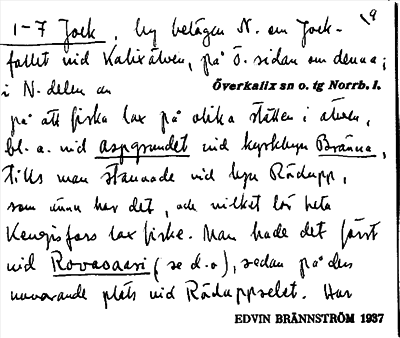 1-7 Jock, by belägen N. om Jock-
fallet vid Kalixälven, på ö. sidan om denna;
i N-delen av
Överkalix sn o. tg Norrb. l.
på att fiska lax på olika ställen i älven,
bl. a. vid aspgrundet vid kyrkbyn Bränna,
tills man stannade vid byn Räktupp,
som ännu har det, och vilket bör heta
Kengisfors lax fiske. Man hade det först
vid Rovasaari (se d.o), sedan på den
nuvarande plats vid Räktuppselet. Har
EDVIN BRÄNNSTRÖM 1937